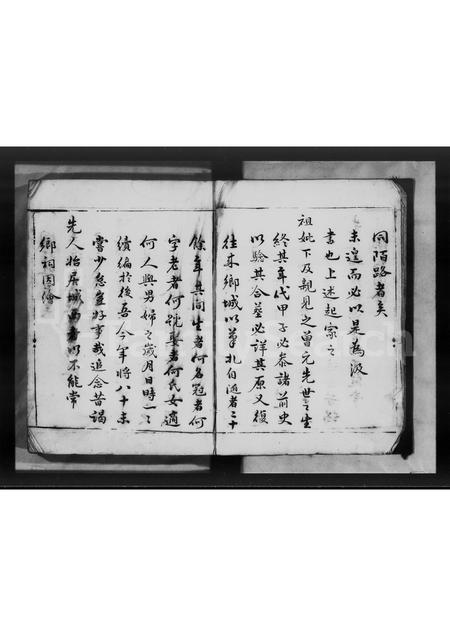 同陌路者矣
未遑而必以是為汲
書也上述起家之
祖妣下及親見之曾元先世之生
終其年代甲子必參諸前史
以驗其合葬必詳其原又復
往來鄉城以筆札自隨者二十
餘年其間生者何名冠者何
字老者何號娶者何氏女適
何人與男婦之歲月日時一之
續編於後吾今年將八十未
嘗少怠豈好事哉追念昔謁
先人始居城西者以不能常
鄉祠因繪